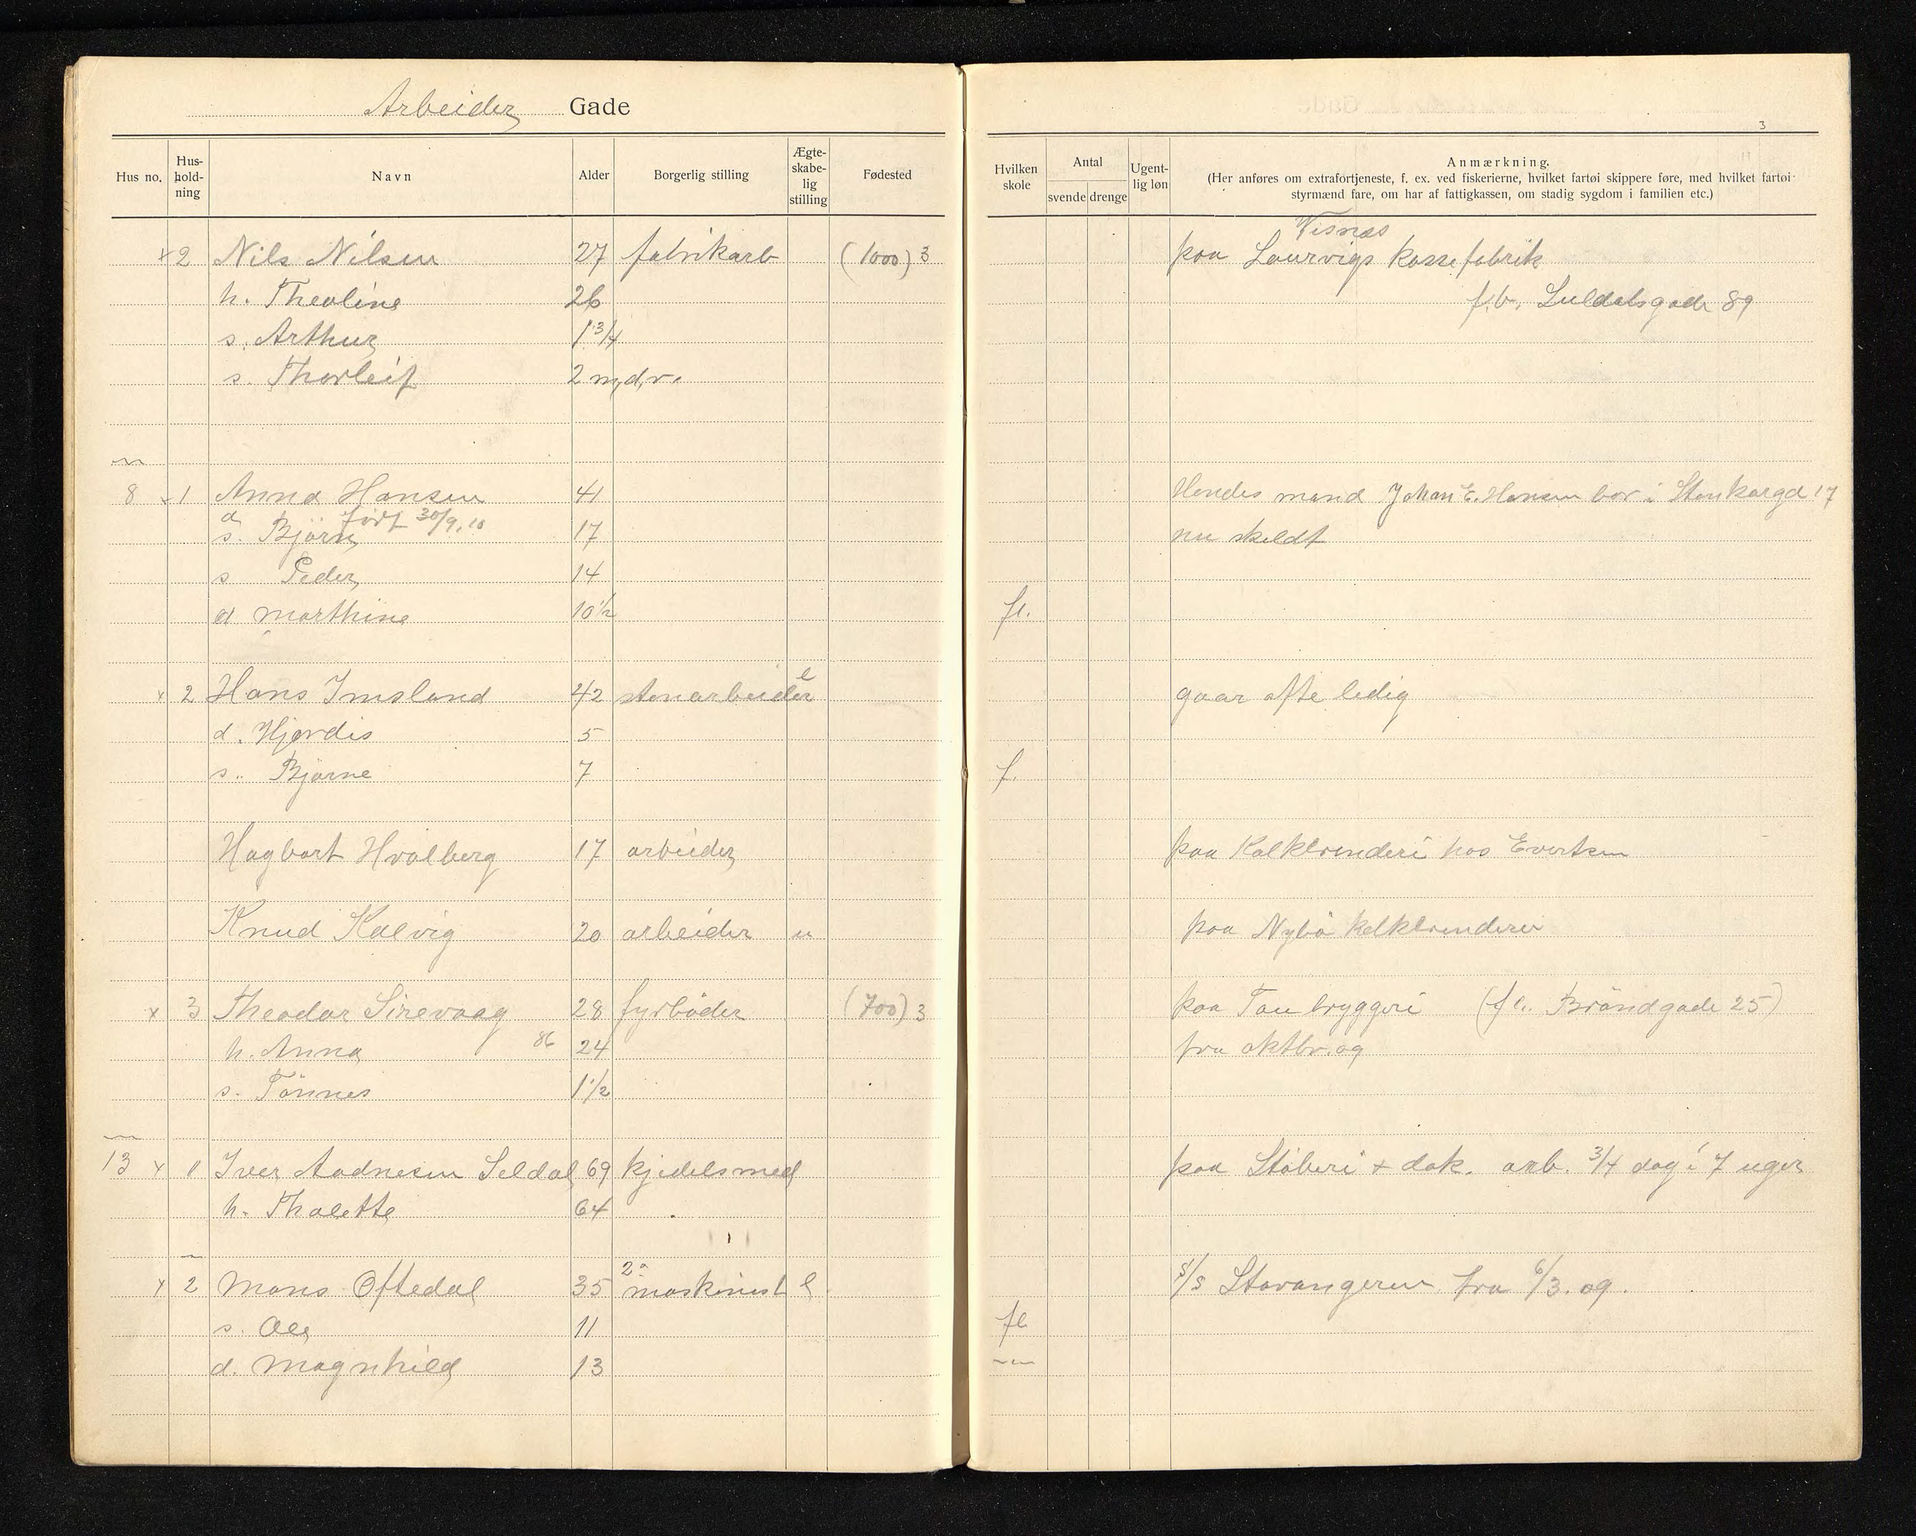 Arbeider Gade
3
Hus no. Hus-hold-ning Navn Alder Borgerlig stilling Ægte-skabe-lig stilling Fødested Hvilken skole Antal svende drenge Ugent-lig løn Anmærkning.
(Her anføres om extrafortjeneste, f. ex. ved fiskerierne, hvilket fartøi skippere føre, med hvilket fartøi styrmænd fare, om har af fattigkassen, om stadig sygdom i familien etc.)
Visnæs
x 2 Nils Nilsen 27 fabrikarb (1000) 3 paa Laurvigs kassefabrik
h. Theoline 26
s. Arthur 1 3/4
s. Thorleif 2 md,r.
8 1 Anna Hansen 41 Hendes mand Johan E. Hansen bor i Stenkargd 17
d født 30/9.10
s. Bjørn 17 nu skeldt
s Peder 14
d Marthine 10 1/2 fl.
x 2 Hans Imsland 42 stenarbeider e gaar ofte ledig
d. Hjørdis 5
s. Bjarne 7 f.
Hagbart Hvalberg 17 arbeider paa Kalkbrenderi hos Evertsen
Knud Kalvig 20 arbeider u paa Nybö kalkbrenderi
x 3 Theodor Sirevaag 28 fyrböder (700) 3 paa Tou bryggeri (fl. Bröndgade 25)
h. Anna 86 24 fra oktbr. 09
s. Tönnes 1 1/2
13 x 1 Iver Aadnesen Seldal 69 kjedelsmed paa Stöberi + dok. arb. 3/4 dag i 7 uger
h. Thalette 64
x 2 Mons Oftedal 35 2n maskinist e s/s Stavangeren fra 6/3. 09.
s. Ole 11 fl
d. Magnhild 13